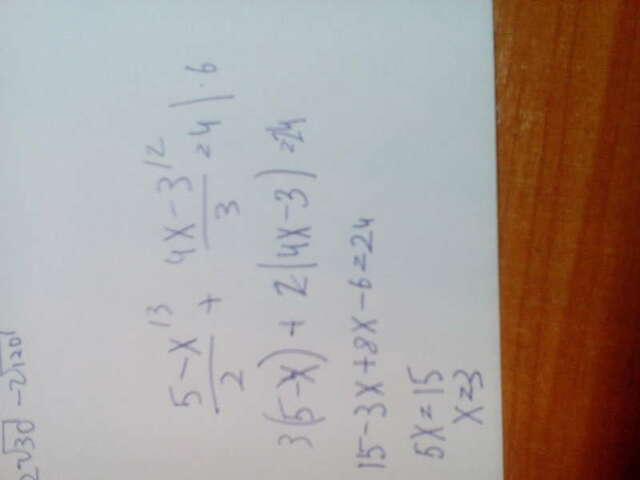 2√30 - 2√120
(5-x)/2 /3 + (4x-3)/3 /2 = 4 | · 6
3(5-x) + 2(4x-3) = 24
15-3x+8x-6=24
5x=15
x=3